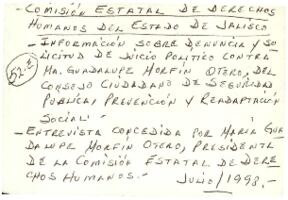 - COMISIÓN ESTATAL DE DERECHOS
HUMANOS DEL ESTADO DE JALISCO
- INFORMACIÓN SOBRE DENUNCIA Y SO
LICITUD DE JUICIO POLITICO CONTRA
MA. GUADALUPE MORFÍN OTERO, DEL
CONSEJO CIUDADANO DE SEGURIDAD
PUBLICA, PREVENCIÓN Y READAPTACIÓN
SOCIAL.-
- ENTREVISTA CONCEDIDA POR MARÍA GUA
DALUPE MORFÍN OTERO, PRESIDENTA
DE LA COMISIÓN ESTATAL DE DERE
CHOS HUMANOS.- JULIO/1998.-